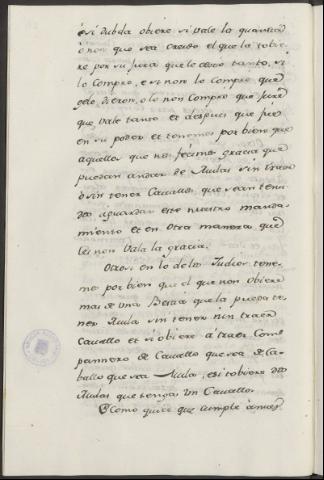 é si dubda obiere si vale la quantia
ó non que sea creido el que la tobie
re por su jura que le costó tanto, si
lo compro, e si non lo compro que
gelo dieron, o lo non compro que jure
que vale tanto et despues que fue
en su poder et tenemos por bien que
aquellos que nos fecimos gracia que
puedan andar de Mulas sin traer
ó sin tener Cavallos que sean teni
dos iguardar este nuestro manda
miento et en otra manera que
les non vala la gracia.
Otrosi en lo de los Judios tene
mos por bien que el que non obiere
mas de una Bestia que la pueda te
ner Mula sin tener nin traer
Cavallo et si obiere á traer Com
pannero de Cavallo que sea de Ca
ballo que sea Mula, e si tobiere dos
Mulas que tenga Un Cavallo.
Como quier que cumple á nues